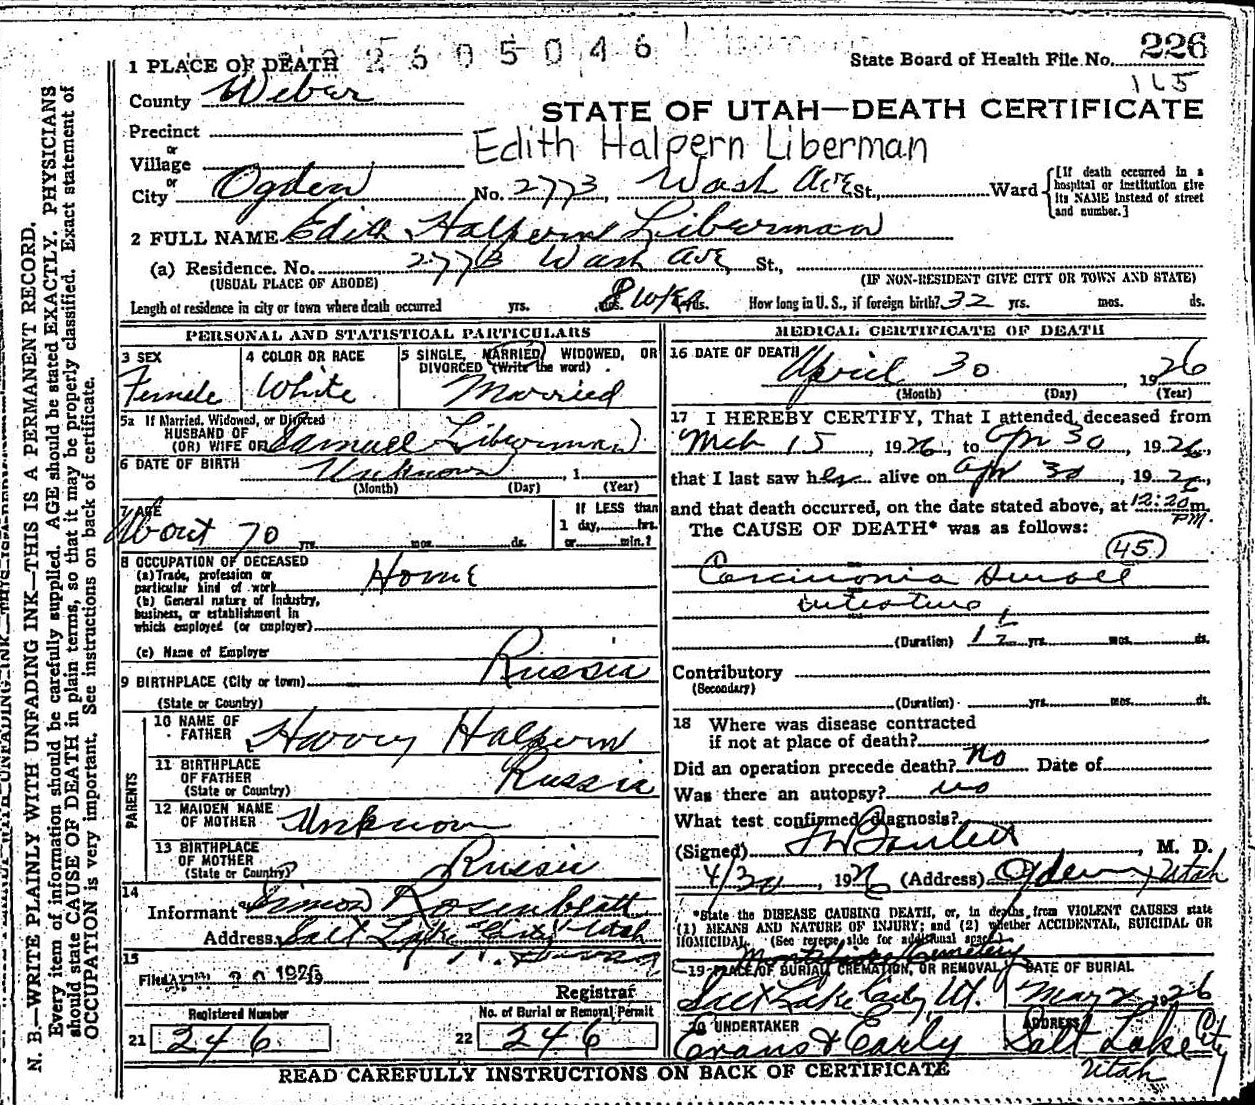 2605046
State Board of Health File No. 226
165
1 PLACE OF DEATH
County Weber
STATE OF UTAH—DEATH CERTIFICATE
Precinct
or
Edith Halpern Liberman
Village
or
City Ogden No. 2773, Wash Ave St., Ward
[If death occurred in a
hospital or institution give
its NAME instead of street
and number.]
2 FULL NAME Edith Halpern Liberman
(a) Residence. No. 2773 Wash Ave St.,
(USUAL PLACE OF ABODE) (IF NON-RESIDENT GIVE CITY OR TOWN AND STATE)
Length of residence in city or town where death occurred yrs. mos. 8 wks ds. How long in U.S., if foreign birth? 32 yrs. mos. ds.
PERSONAL AND STATISTICAL PARTICULARS
3 SEX
Female
4 COLOR OR RACE
White
5 SINGLE, MARRIED, WIDOWED, OR
DIVORCED (Write the word)
Married
5a If Married, Widowed, or Divorced
HUSBAND OF
(OR) WIFE OF Samuel Liberman
6 DATE OF BIRTH Unknown, 1
(Month) (Day) (Year)
7 AGE
About 70 yrs. mos. ds.
If LESS than
1 day, hrs.
or min.?
8 OCCUPATION OF DECEASED
(a) Trade, profession or
particular kind of work Home
(b) General nature of industry,
business, or establishment in
which employed (or employer)
(c) Name of Employer
9 BIRTHPLACE (City or town) Russia
(State or Country)
PARENTS
10 NAME OF
FATHER Harry Halpern
11 BIRTHPLACE
OF FATHER
(State or Country) Russia
12 MAIDEN NAME
OF MOTHER Unknown
13 BIRTHPLACE
OF MOTHER
(State or Country) Russia
14
Informant Simon Rosenblatt
Address Salt Lake City Utah
15
Filed 1926
Registrar
Registered Number
21 246
No. of Burial or Removal Permit
22 246
MEDICAL CERTIFICATE OF DEATH
16 DATE OF DEATH
April 30, 1926
(Month) (Day) (Year)
17 I HEREBY CERTIFY, That I attended deceased from
Mch 15, 1926, to Apr 30, 1926,
that I last saw her alive on Apr 30, 1926,
and that death occurred, on the date stated above, at 12:20 m.
PM.
The CAUSE OF DEATH* was as follows:
45
Carcinonia Small
intestine
(Duration) 1 1/2 yrs. mos. ds.
Contributory
(Secondary)
(Duration) yrs. mos. ds.
18 Where was disease contracted
if not at place of death?
Did an operation precede death? No Date of
Was there an autopsy? no
What test confirmed diagnosis?
(Signed) Bartlett, M. D.
4/30, 1926 (Address) Ogden, Utah
*State the DISEASE CAUSING DEATH, or, in deaths from VIOLENT CAUSES state
(1) MEANS AND NATURE OF INJURY; and (2) whether ACCIDENTAL, SUICIDAL OR
HOMICIDAL. (See reverse side for additional space.)
Montifiore Cemetery
19 PLACE OF BURIAL CREMATION, OR REMOVAL
Salt Lake City, Ut.
DATE OF BURIAL
May 2 1926
20 UNDERTAKER
Evans & Early
ADDRESS
Salt Lake City
Utah
READ CAREFULLY INSTRUCTIONS ON BACK OF CERTIFICATE
N. B.—WRITE PLAINLY WITH UNFADING INK—THIS IS A PERMANENT RECORD.
Every item of information should be carefully supplied. AGE should be stated EXACTLY. PHYSICIANS
should state CAUSE OF DEATH in plain terms, so that it may be properly classified. Exact statement of
OCCUPATION is very important. See instructions on back of certificate.